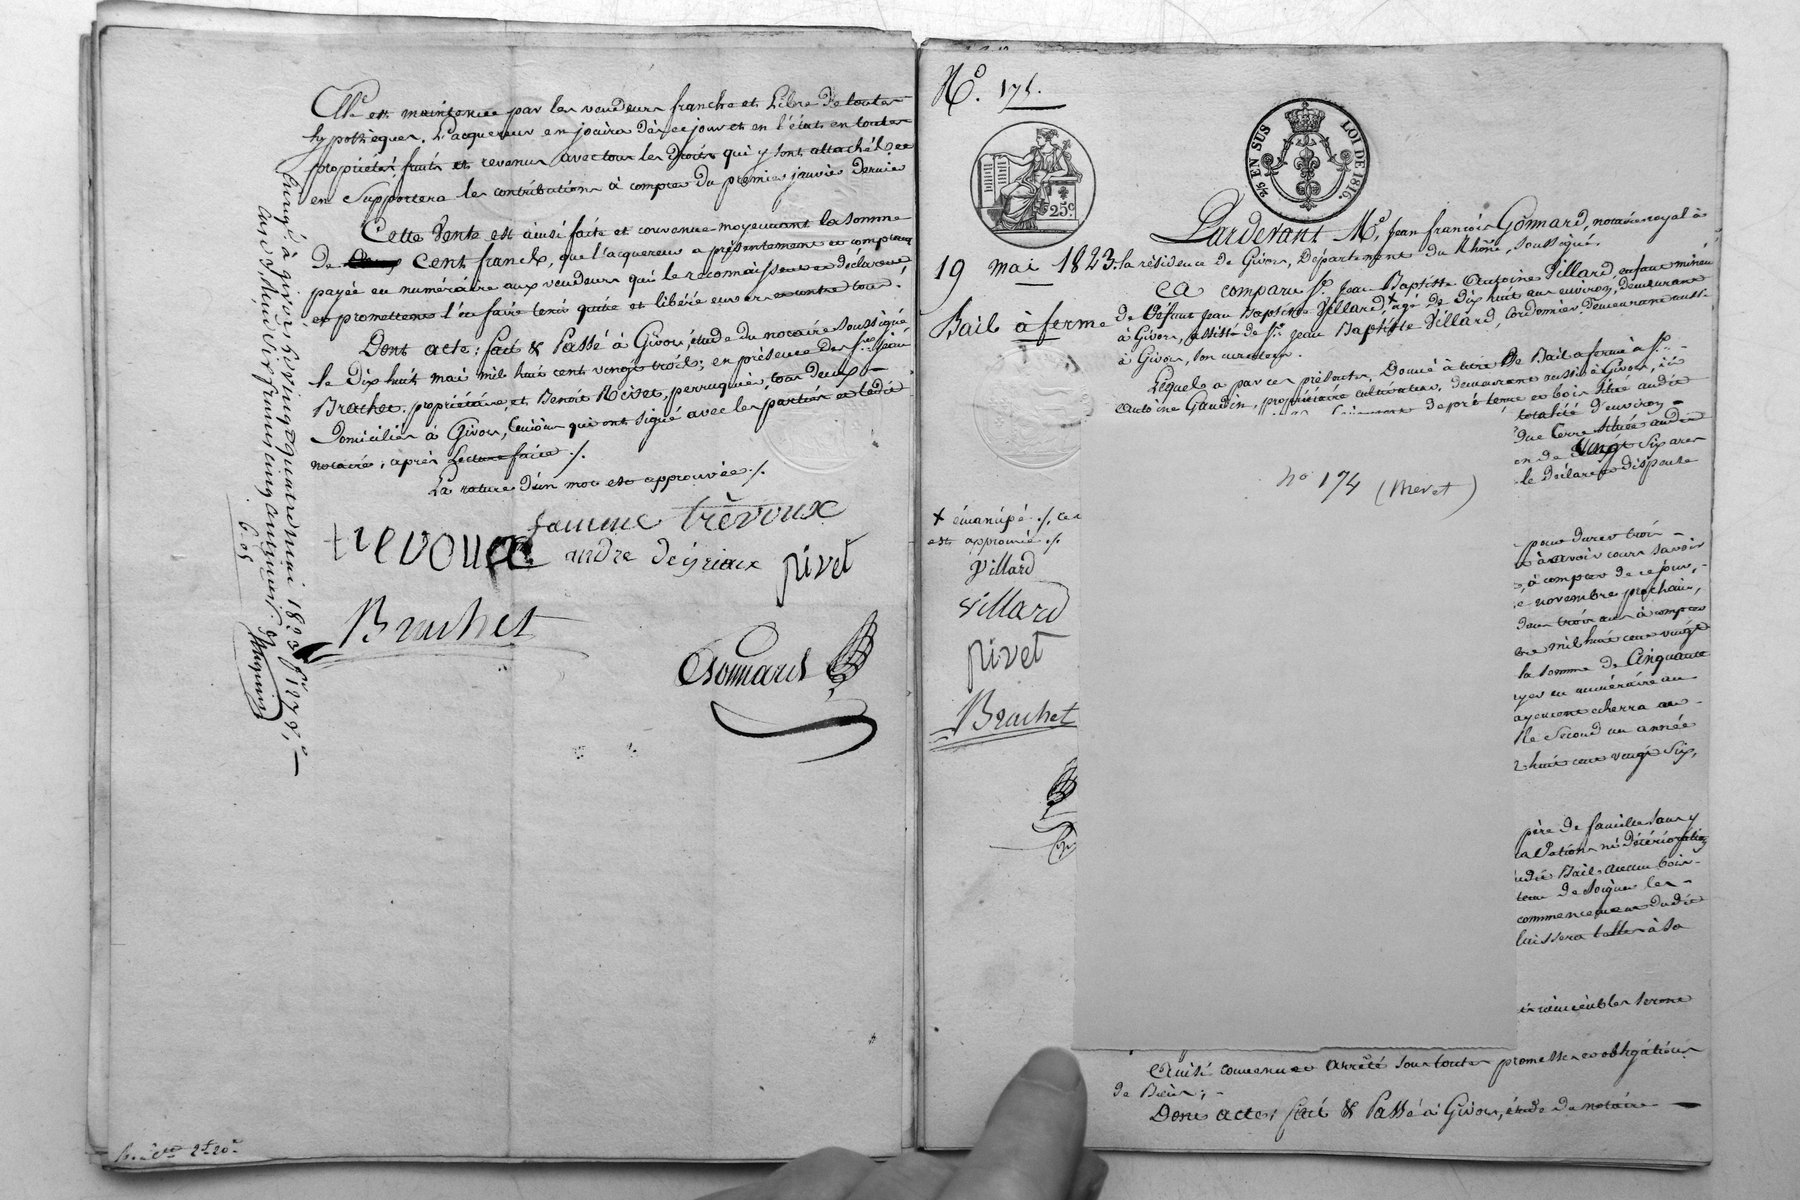 Elle est maintenue par les vendeurs franche et Libre de toutes
hypothèques. L'acquereur en jouira dès ce jour et en l'état en toutes
propriétés fruits et revenus avec tous les droits qui y sont attachés, et
en Supportera les contributions à compter du premier janvier dernier
Cette Vente est ainsi faite et convenue moyennant la somme
de cent francs, que l'acquereur a présentement et comptant
payée en numéraire aux vendeurs qui le reconnaissent et déclarent
et promettent l'en faire tenir quite et libéré envers et contre tous.
Dont acte; fait & Passé à Givors, étude du notaire soussigné,
le dix huit mai mil huit cent vingt trois; en présence des Srs Jean
Brachet, propriétaire, et Benoit Rivet, perruquier, tous deux
domiciliés à Givors, témoins qui ont signé avec les parties et ledit
notaire, après lecture faite ./.
La rature d'un mot est approuvée ./.
femme trèvoux
trevoux
andre deygriaux
rivet
Brachet
Gonnard
Enregé. à Givors, le vingt quatre mai 1823 fo 127 Vo,
cinq francs cinquante
6.05
2f 20c
No. 175.
25c
25 EN SUS LOI DE 1816.
19 mai 1823.
Bail à ferme
Pardevant Me. Jean françois Gonnard, notaire royal à
la résidence de Givors, Département du Rhône, soussigné.
Ca comparu Sr. Jean Baptiste Antoine Villard, enfant mineur
de défunt Jean Baptiste Villard, x agé de dix huit ans environ, demeurant
à Givors, assisté de Sr. Jean Baptiste Villard, Cordonnier, demeurant aussi
à Givors, son curateur.
Lequel a par ces présentes, Donné à titre de Bail a ferme à Sr.
Antoine Gaudin, propriétaire cultivateur, demeurant aussi à Givors, ici
de pré terre et bois situé audit
totalité d'environ
due terre située audit
en de vingt Six ares
le déclare dispenser
no 174 (Mevet)
x émancipé ./. Ce
est approuvé ./.
Villard
Villard
rivet
Brachet
pour durer trois
à avoir cours savoir
à compter de ce jour,
e novembre prochain,
dans trois ans à compter
bre mil huit cent vingt
la somme de Cinquante
yer en numéraire au
ayement echerra au
le Second un année
l huit cent vingt Six,
père de famille sans y
ni détérioration
udit Bail aucun bois
tenu de soigner les
commencement dudit
laissera telles à sa
immeubles seront
Ainsi convenu et arrêté sous toutes promesses et obligations
de Biens;
Dont acte; fait & Passé à Givors, étude du notaire